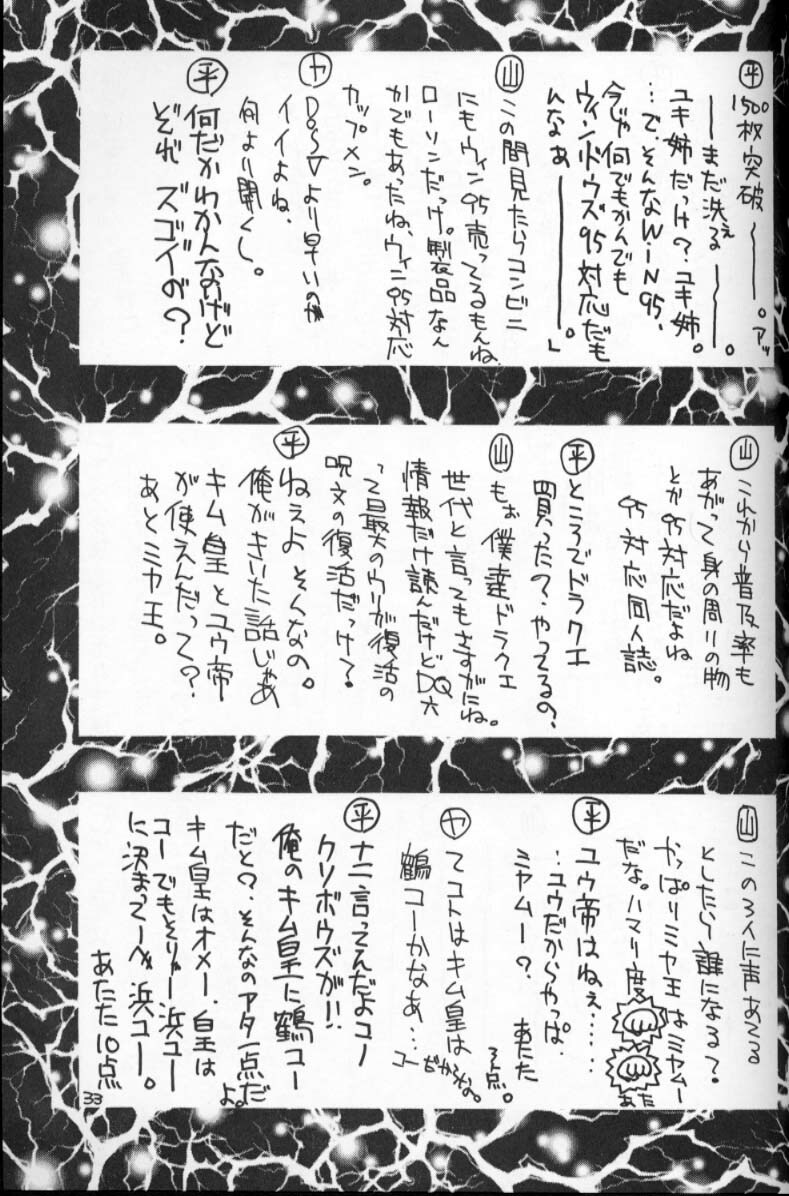 ㊥
1500枚突破〜〜。アッ
――まだ洗るぇ――。
ユキ姉だっけ?ユキ姉。
…で、そんなWiN95、
今じゃ何でもかんでも
ウィンドウズ95対応だも
んなぁ――――。」
㊤
この間見たらコンビニ
にもウィン95売ってるもんね
ローソンだっけ。製品なん
かでもあったね、ウィン95対応
カップメン。
ヤ
DOS/Vより早いのが
イイよね、
何より聞くし。
平
何だかわかんなけど
ぞれ ズゴイが?
山
これから普及率も
あがって身の周りの物
とか95対応だよね
95対応同人誌。
平
ところでドラクエ
買ったの?やってるの?
山
もぉ僕達ドラクエ
世代と言ってもさすがにね。
情報だけ読んだけどDQ六
って最大のウリが復活の
呪文の復活だっけ?
平
ねぇよそんなの。
俺がきいた話じゃあ
キム皇とユウ帝
が使えんだって?
あとミヤ王。
山
この3人に声あてる
としたら誰になる?
かっぱりミヤ王はミヤムー
だな。ハマリ度
あた
平
ユウ帝はねぇ……
…ユウだからやっぱ
ミヤムー? あたた
3点。
ヤ
てコトはキム皇は
鶴コーかなあ…
コーだからね。
平
ナニ言ってんだよコノ
クソボウズが!!
俺のキム皇に鶴コー
だと?そんなのアター点だ
よ。
キム皇はオメー、皇は
コーでもそりゃー浜コー
に決まってーべ浜コー。
あたた10点
33